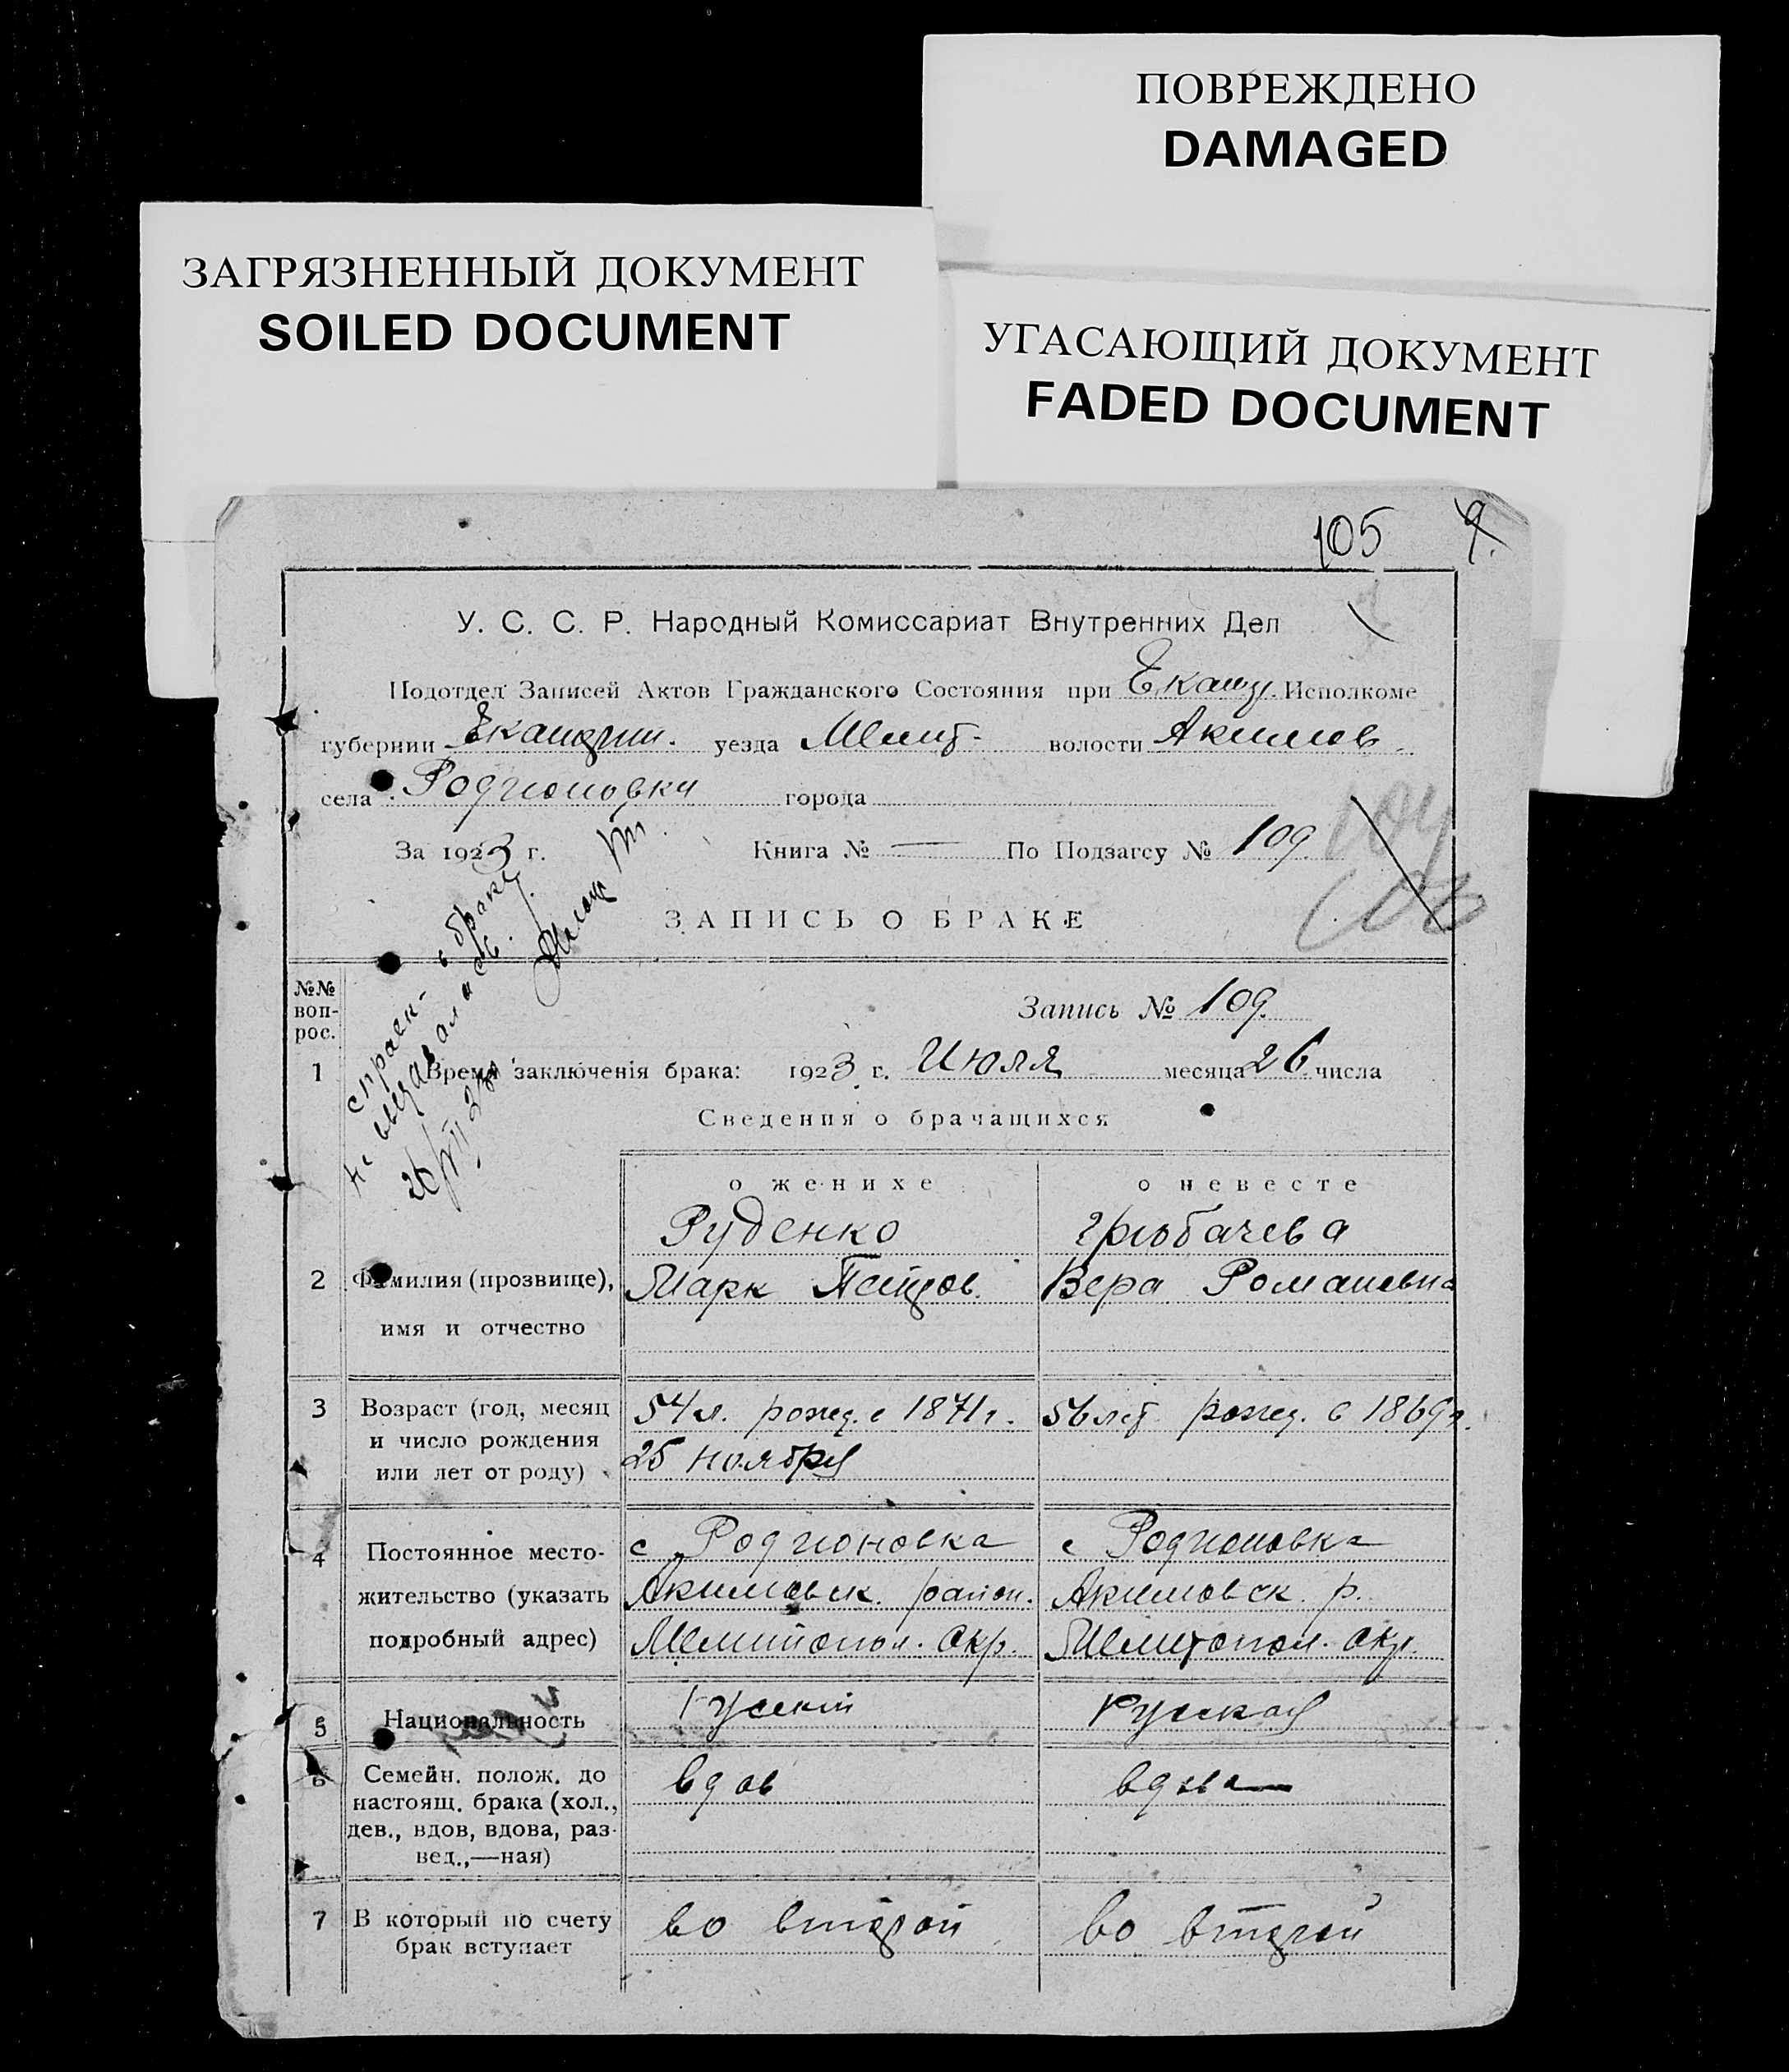 ПОВРЕЖДЕНО
DAMAGED
ЗАГРЯЗНЕННЫЙ ДОКУМЕНТ
SOILED DOCUMENT
УГАСАЮЩИЙ ДОКУМЕНТ
FADED DOCUMENT
105 9.
У. С. С. Р. Народный Комиссариат Внутренних Дел
Подотдел Записей Актов Гражданского Состояния при Исполкоме
губернии уезда Мелит. волости Акимов.
села Родионовка города
За 1923 г. Книга № — По Подзагсу № 109.
104
106
ЗАПИСЬ О БРАКЕ
справк- о браке
не выдавалась.
26/VII 23
№№ вопрос.
Запись № 109.
1 Время заключенія брака: 1923 г. Июля месяца 26 числа
Сведения о брачащихся
о женихе о невесте
Руденко Грюбачева
2 Фамилия (прозвище), Марк Петров. Вера Романовна
имя и отчество
3 Возраст (год, месяц 54 л. рожд. в 1871 г. 56 лет рожд. в 1869 г.
и число рождения 25 ноября
или лет от роду)
с Родионовка с Родионовка
4 Постоянное место-
жительство (указать Акимовск. район. Акимовск. р.
подробный адрес) Мелитопол. окр. Мелитопол. окр.
5 Национальность Русский Русская
6 Семейн. полож. до вдов вдова
настоящ. брака (хол.,
дев., вдов, вдова, раз-
вед.,—ная)
7 В который по счету во второй во второй
брак вступает